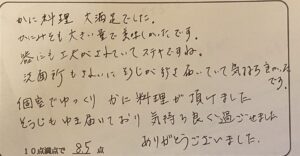 かに料理 大満足でした。
かにみそも大きい量で美味しかったです。
器にも工夫がされていてステキですね。
洗面所もきれいにそうじが行き届いていて気持ち良かった
です。
個室でゆっくりかに料理が頂けました
そうじもゆき届いており気持ち良く過ごせました
ありがとうございました。
10点満点で 85 点